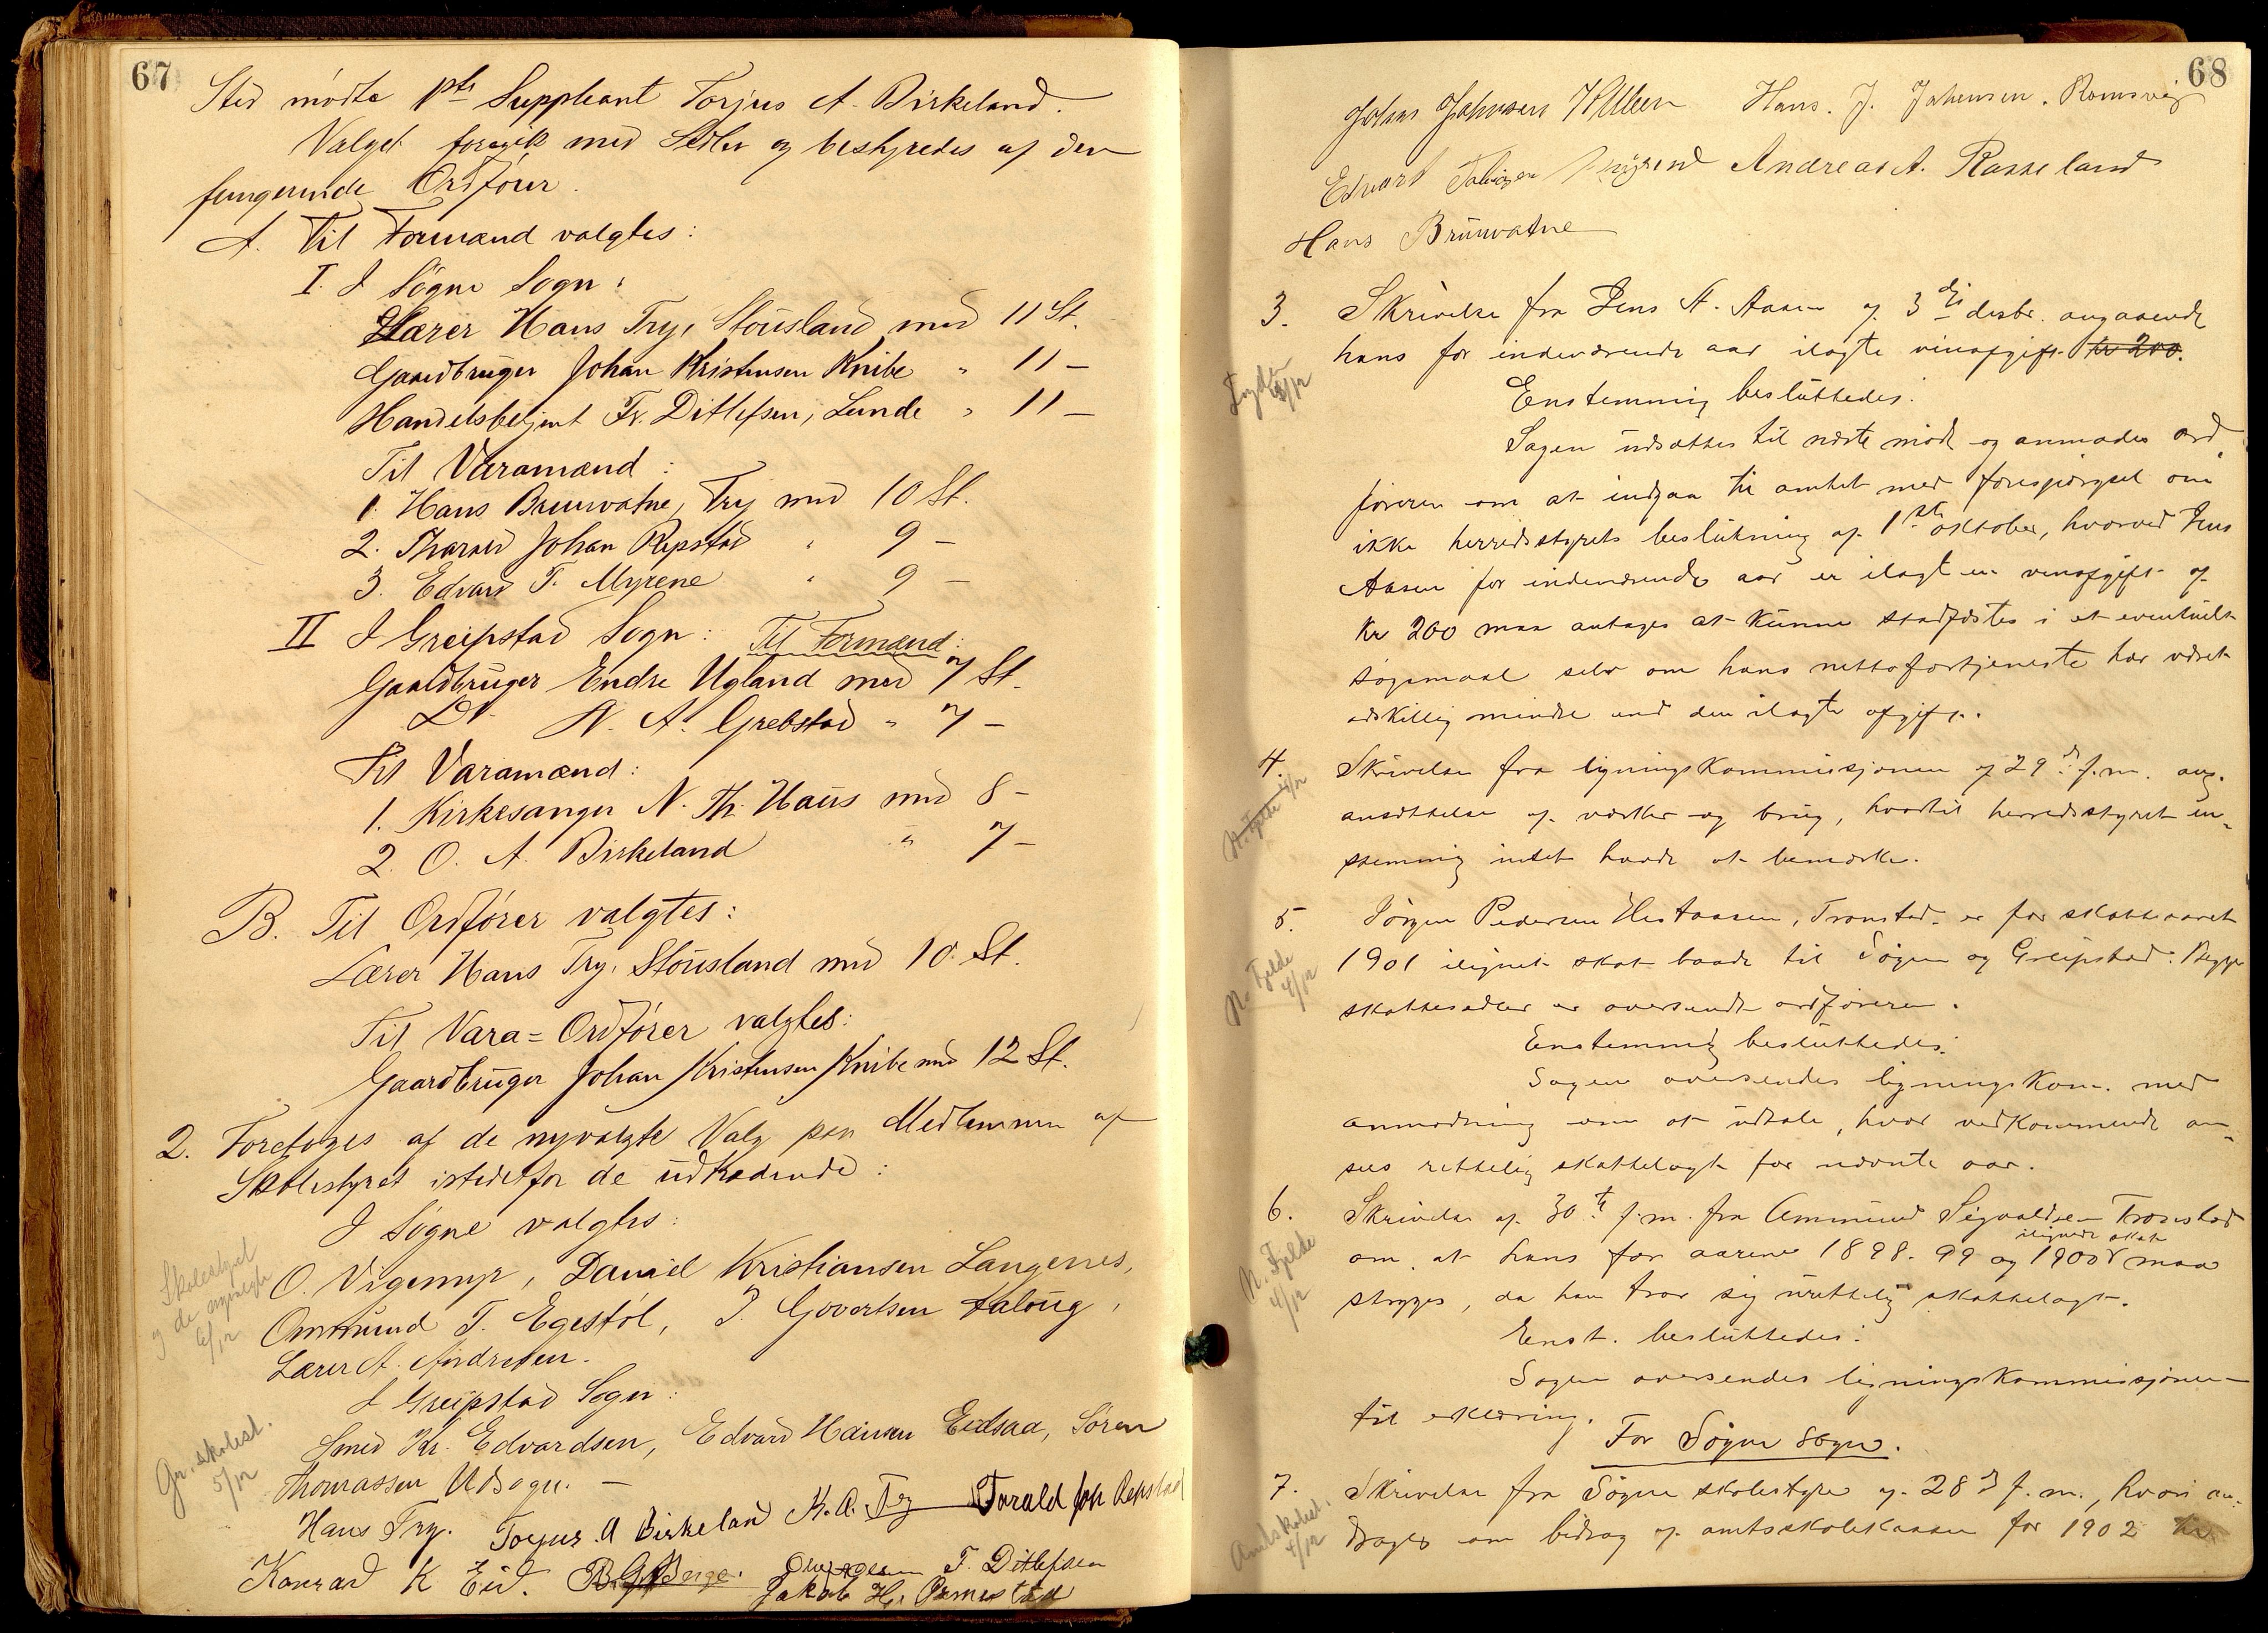 67
Sted mødte 1ste Suppleant Torjus A. Birkeland.
Valget foregik med Sedler og bestyredes af den
fungerende Ordfører.
A. Til Formænd valgtes:
I. I Søgne Sogn:
Lærer Hans Try, Stousland med 11 St.
Gaardbruger Johan Kristensen Knibe " 11 -
Handelsbetjent Fr. Ditlefsen, Lunde " 11 -
Til Varamænd:
1. Hans Brunvatne, Try med 10 St.
2. Tharald Johan Repstad " 9 -
3. Edvard T. Myrene " 9 -
II I Greipstad Sogn: Til Formænd:
Gaardbruger Endre Ugland med 7 St.
Do. N. A. Grebstad " 7 -
Til Varamænd:
1. Kirkesanger N. Th. Haus med 8 -
2. O. A. Birkeland " 7 -
B. Til Ordfører valgtes:
Lærer Hans Try, Stousland med 10 St.
Til Vara=Ordfører valgtes:
Gaardbruger Johan Kristensen Knibe med 12 St.
2. Foretoges af de nyvalgte Valg paa Medlemmer af
Skolestyret istedetfor de udtrædende:
I Søgne valgtes:
O. Vigemyr, Daniel Kristiansen Langenes,
Ommund T. Egestøl, J. Govertsen Aaloug,
Lærer A. Andresen.
Skolestyret
og de nyvalgte
6/12
I Greipstad Sogn:
Smed Kr. Edvardsen, Edvard Hansen Eidsaa, Søren
Thomassen Udsogn. -
Gr. skolest.
5/12
Hans Try. Torjus. A Birkeland K. A. Try Tarald Joh Repstad
Konrad K Eid. B. G. Berge. F. Ditlefsen
Jakob H.
68
Johan Johnsen Hans. J. Johensen. Romsvig
Edvart Andreas A. Rasseland
Hans Brunvatne
3. Skrivelse fra Jens A. Aasen af 3die desbr. angaaende
hans for indeværende aar ilagte vinafgift kr 200.
4/12
Enstemmig besluttedes:
Sagen udsættes til næste møde og anmodes ord-
føreren om at indgaa til amtet med forespørgsel om
ikke herredsstyrets beslutning af 1ste oktober, hvorved Jens
Aasen for indeværende aar er ilagt en vinafgift af
kr 200 maa antages at kunne stadfæstes i et eventuelt
søgsmaal selv om hans nettofortjeneste har været
adskillig mindre end den ilagte afgift.
4. Skrivelse fra ligningskommissjonen af 29d f.m. ang.
ansættelse af værker og brug, hvortil herredsstyret en-
stemmig intet havde at bemærke.
4/12
5. Jørgen Pedersen Hestaasen, Tronstad er for skatteaaret
1901 ilignet skat baade til Søgne og Greipstad. Begge
skattesedler er oversendt ordføreren.
N. Fjelde
4/12
Enstemmig besluttedes:
Sagen oversendes ligningskom. med
anmodning om at udtale, hvor vedkommende an-
sees rettelig skattelagt for nævnte aar.
6. Skrivelse af 30te f.m. fra Ammund Sigvaldsen Tronstad
om at hans for aarene 1898. 99 og 1900 ilignede skat maa
stryges, da han tror sig urettelig skattelagt.
N. Fjelde
4/12
Enst. besluttedes:
Sagen oversendes ligningskommissjonen
til erklæring.
For Søgne sogn.
7. Skrivelse fra Søgne skolestyre af 28d f.m., hvori an-
drages om bidrag af amtsskolekassen for 1902
Amtskolest.
4/12